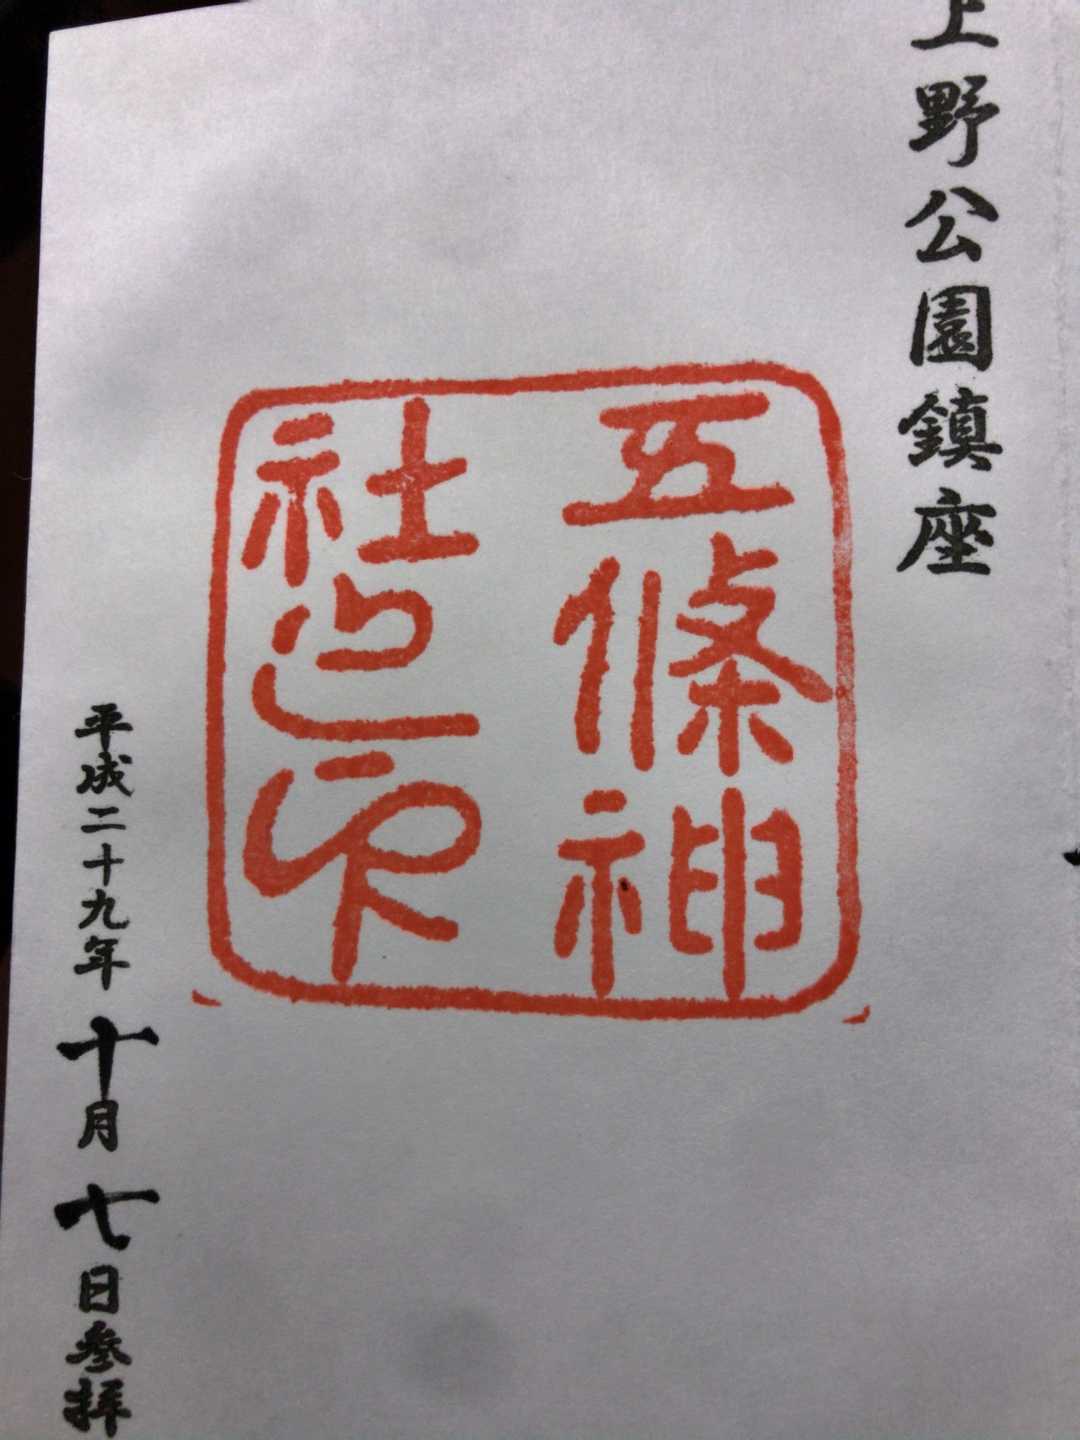 上野公園鎮座
五條神
社之印
平成二十九年十月七日参拝